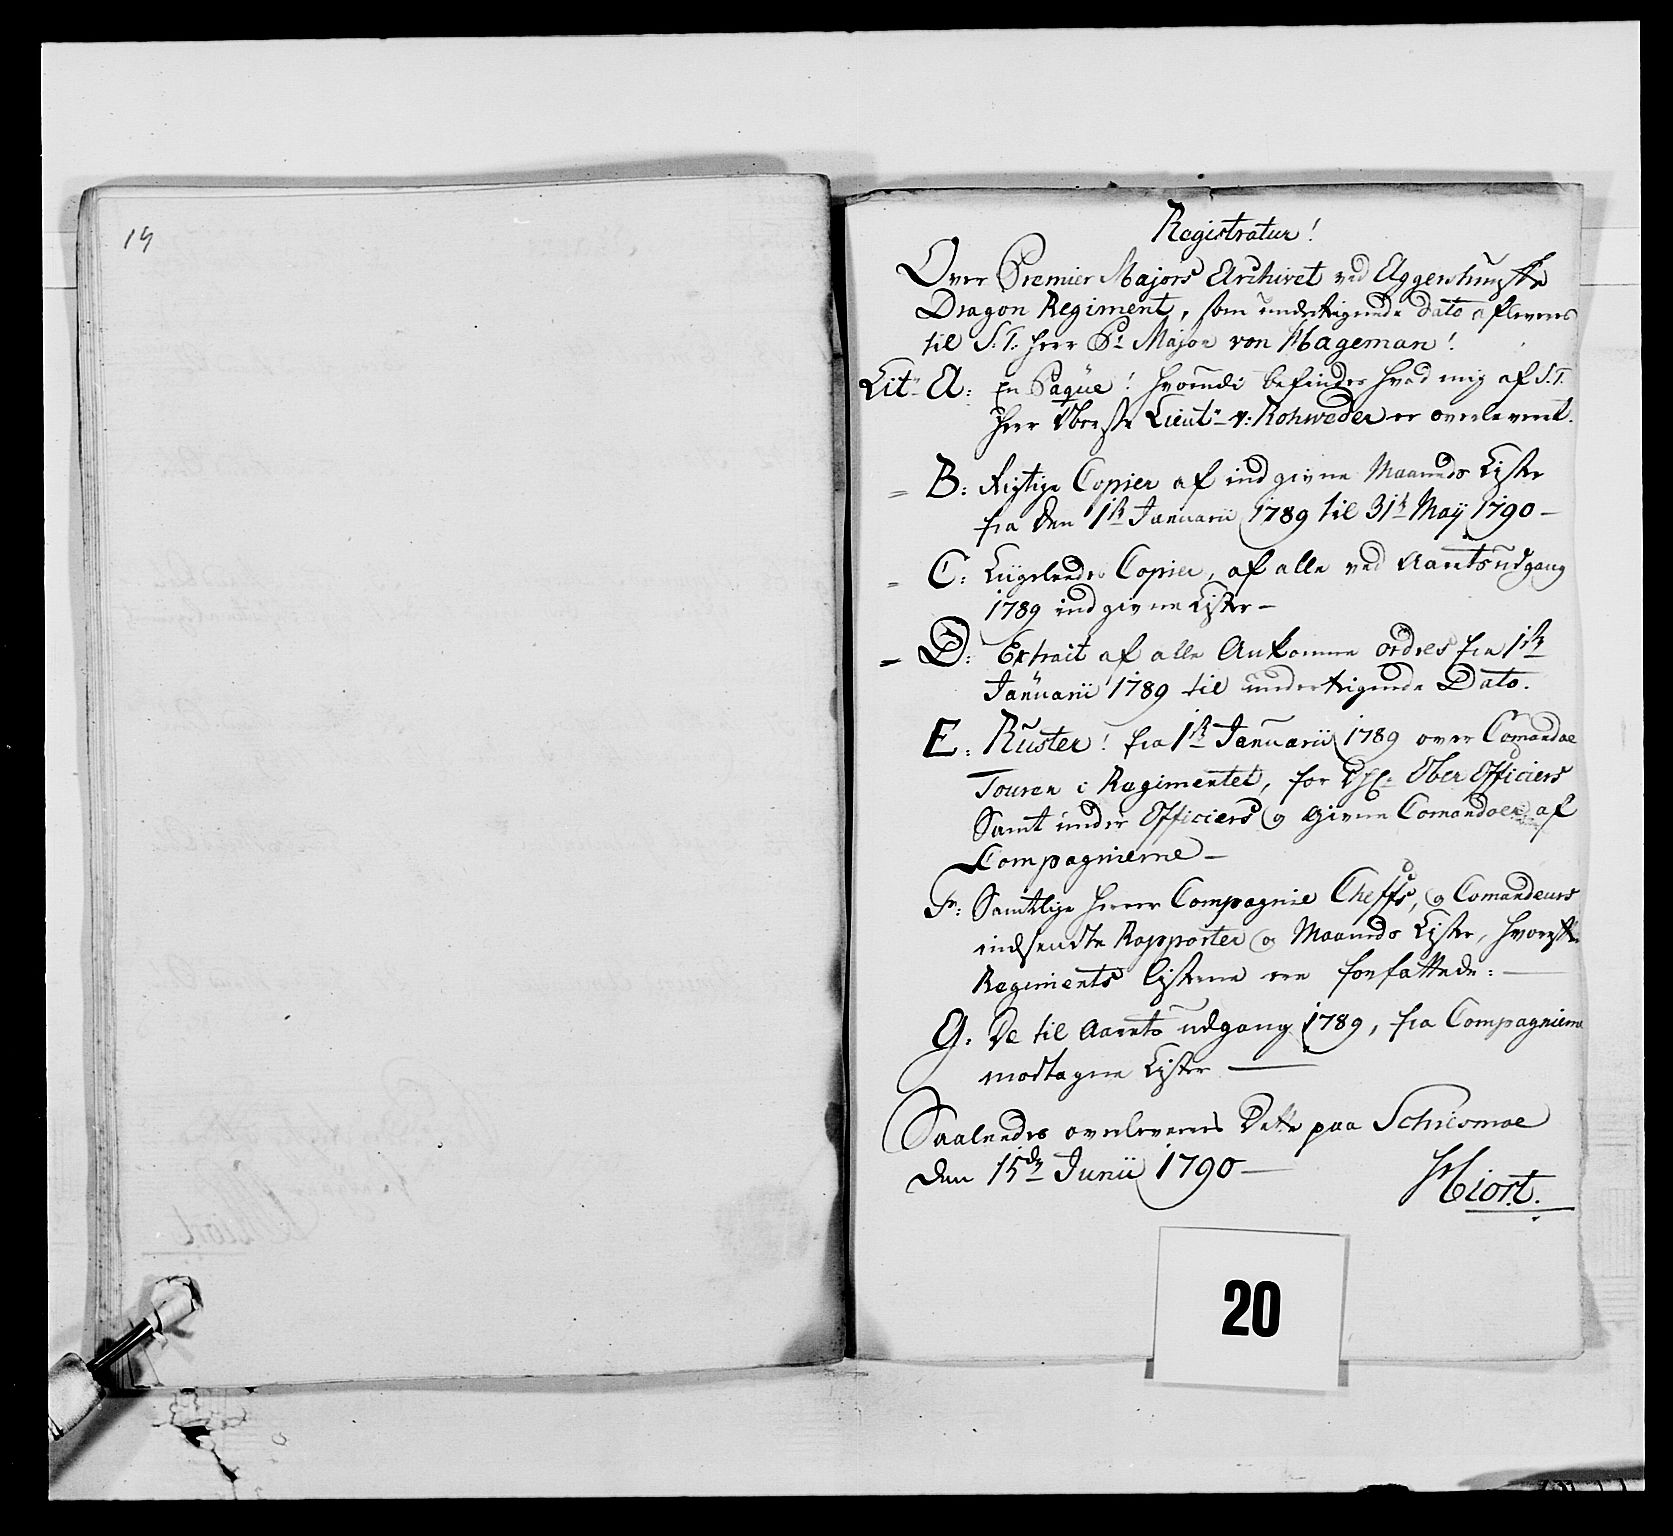 19
Registratur!
Over Premier Majors Archivet ved Aggershuusske
Dragon Regiment, som understregende Dato afleveres
til S.T. Herr Pr Major von Hageman!
Litr A: En Paqüe! hvorudi befindes hvad mig af S.T.
Herr Oberste Lieutn v: Rohweder er overleveret.
= B: Rigtige Copier af indgivne Maaneds Lister
fra den 1ste Januarii 1789 til 31te Maij 1790 —
= C: Liigeleedes Copier, af alle ved Aarets udgang
1789 indgivne Lister —
= D: Extrait af alle Ankomne ordres fra 1ste
Januarii 1789 til understregende Dato.
E: Ruster! fra 1ste Januarii 1789 over Comandoe
Touren i Regimentet, for Ober Officiers
Samt under Officiers og givne Comandoer af
Compagnierne —
F: Samtlige Herrer Compagnie Cheffs, og Comandeurs
indsendte Rapporter og Maaneds Lister, hvorefter
Regiments Listerne ere forfattede: —
G: De til Aarets udgang 1789, fra Compagnierne
modtagne Lister —
Saaleedes overleveres Dette paa Schiesmoe
den 15de Junii 1790 —
Hiort.
20